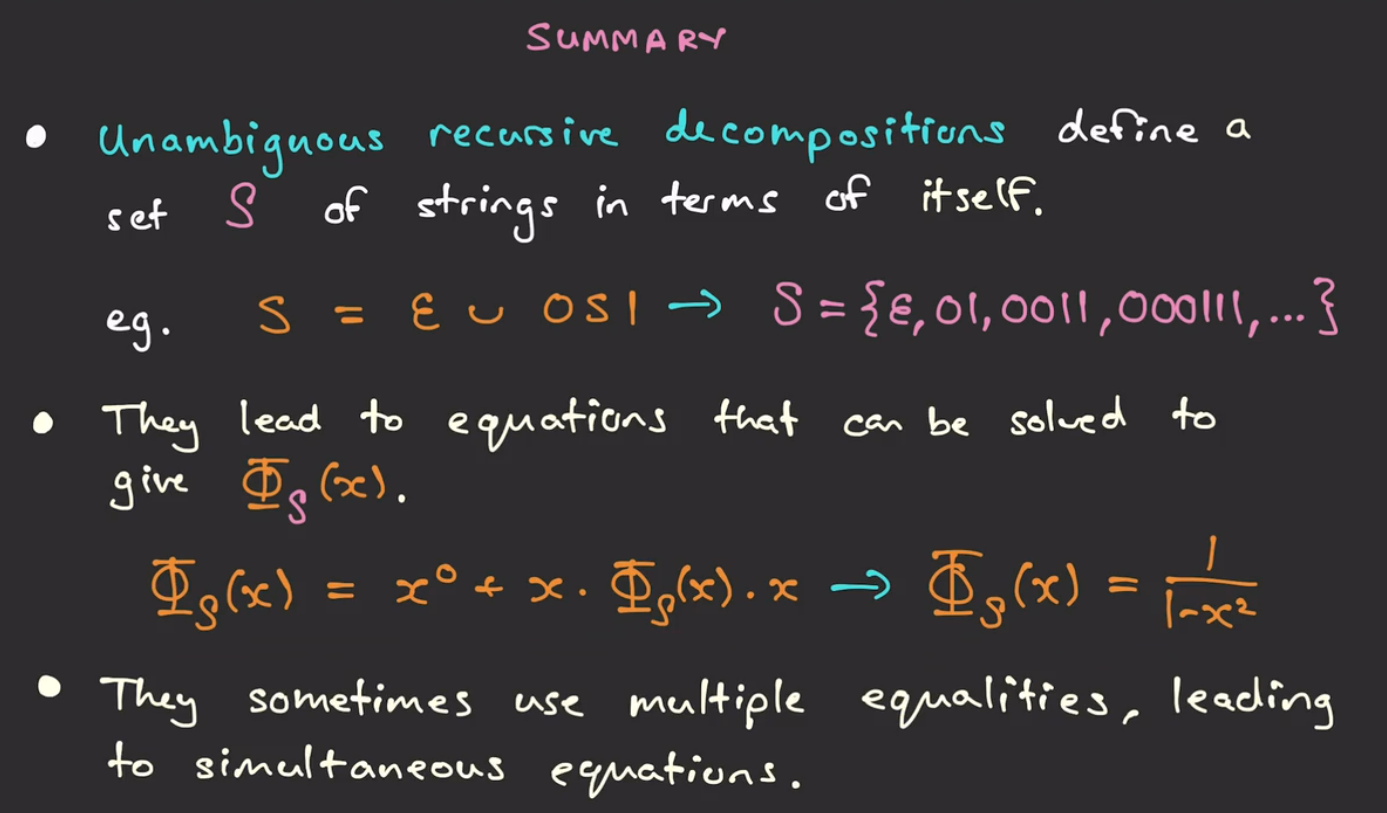 SUMMARY
• Unambiguous recursive decompositions define a
set S of strings in terms of itself.
eg. S = ε ∪ 0S1 → S = {ε, 01, 0011, 000111, ...}
• They lead to equations that can be solved to
give Φ_S(x).
Φ_S(x) = x⁰ + x · Φ_S(x) · x → Φ_S(x) = 1/(1-x²)
• They sometimes use multiple equalities, leading
to simultaneous equations.